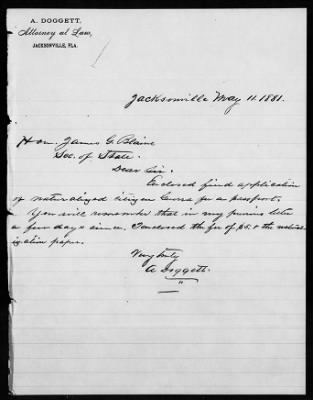 A. DOGGETT,
Attorney at Law,
JACKSONVILLE, FLA.
Jacksonville May 11. 1881.
Hon. James G. Blaine
Sec. of State.
Dear Sir.
Enclosed find application
of naturalized citizen for a passport.
You will remember that in my previous letter
a few days since. I enclosed the fee of $5. & the natural-
ization paper.
Very truly
A Doggett.